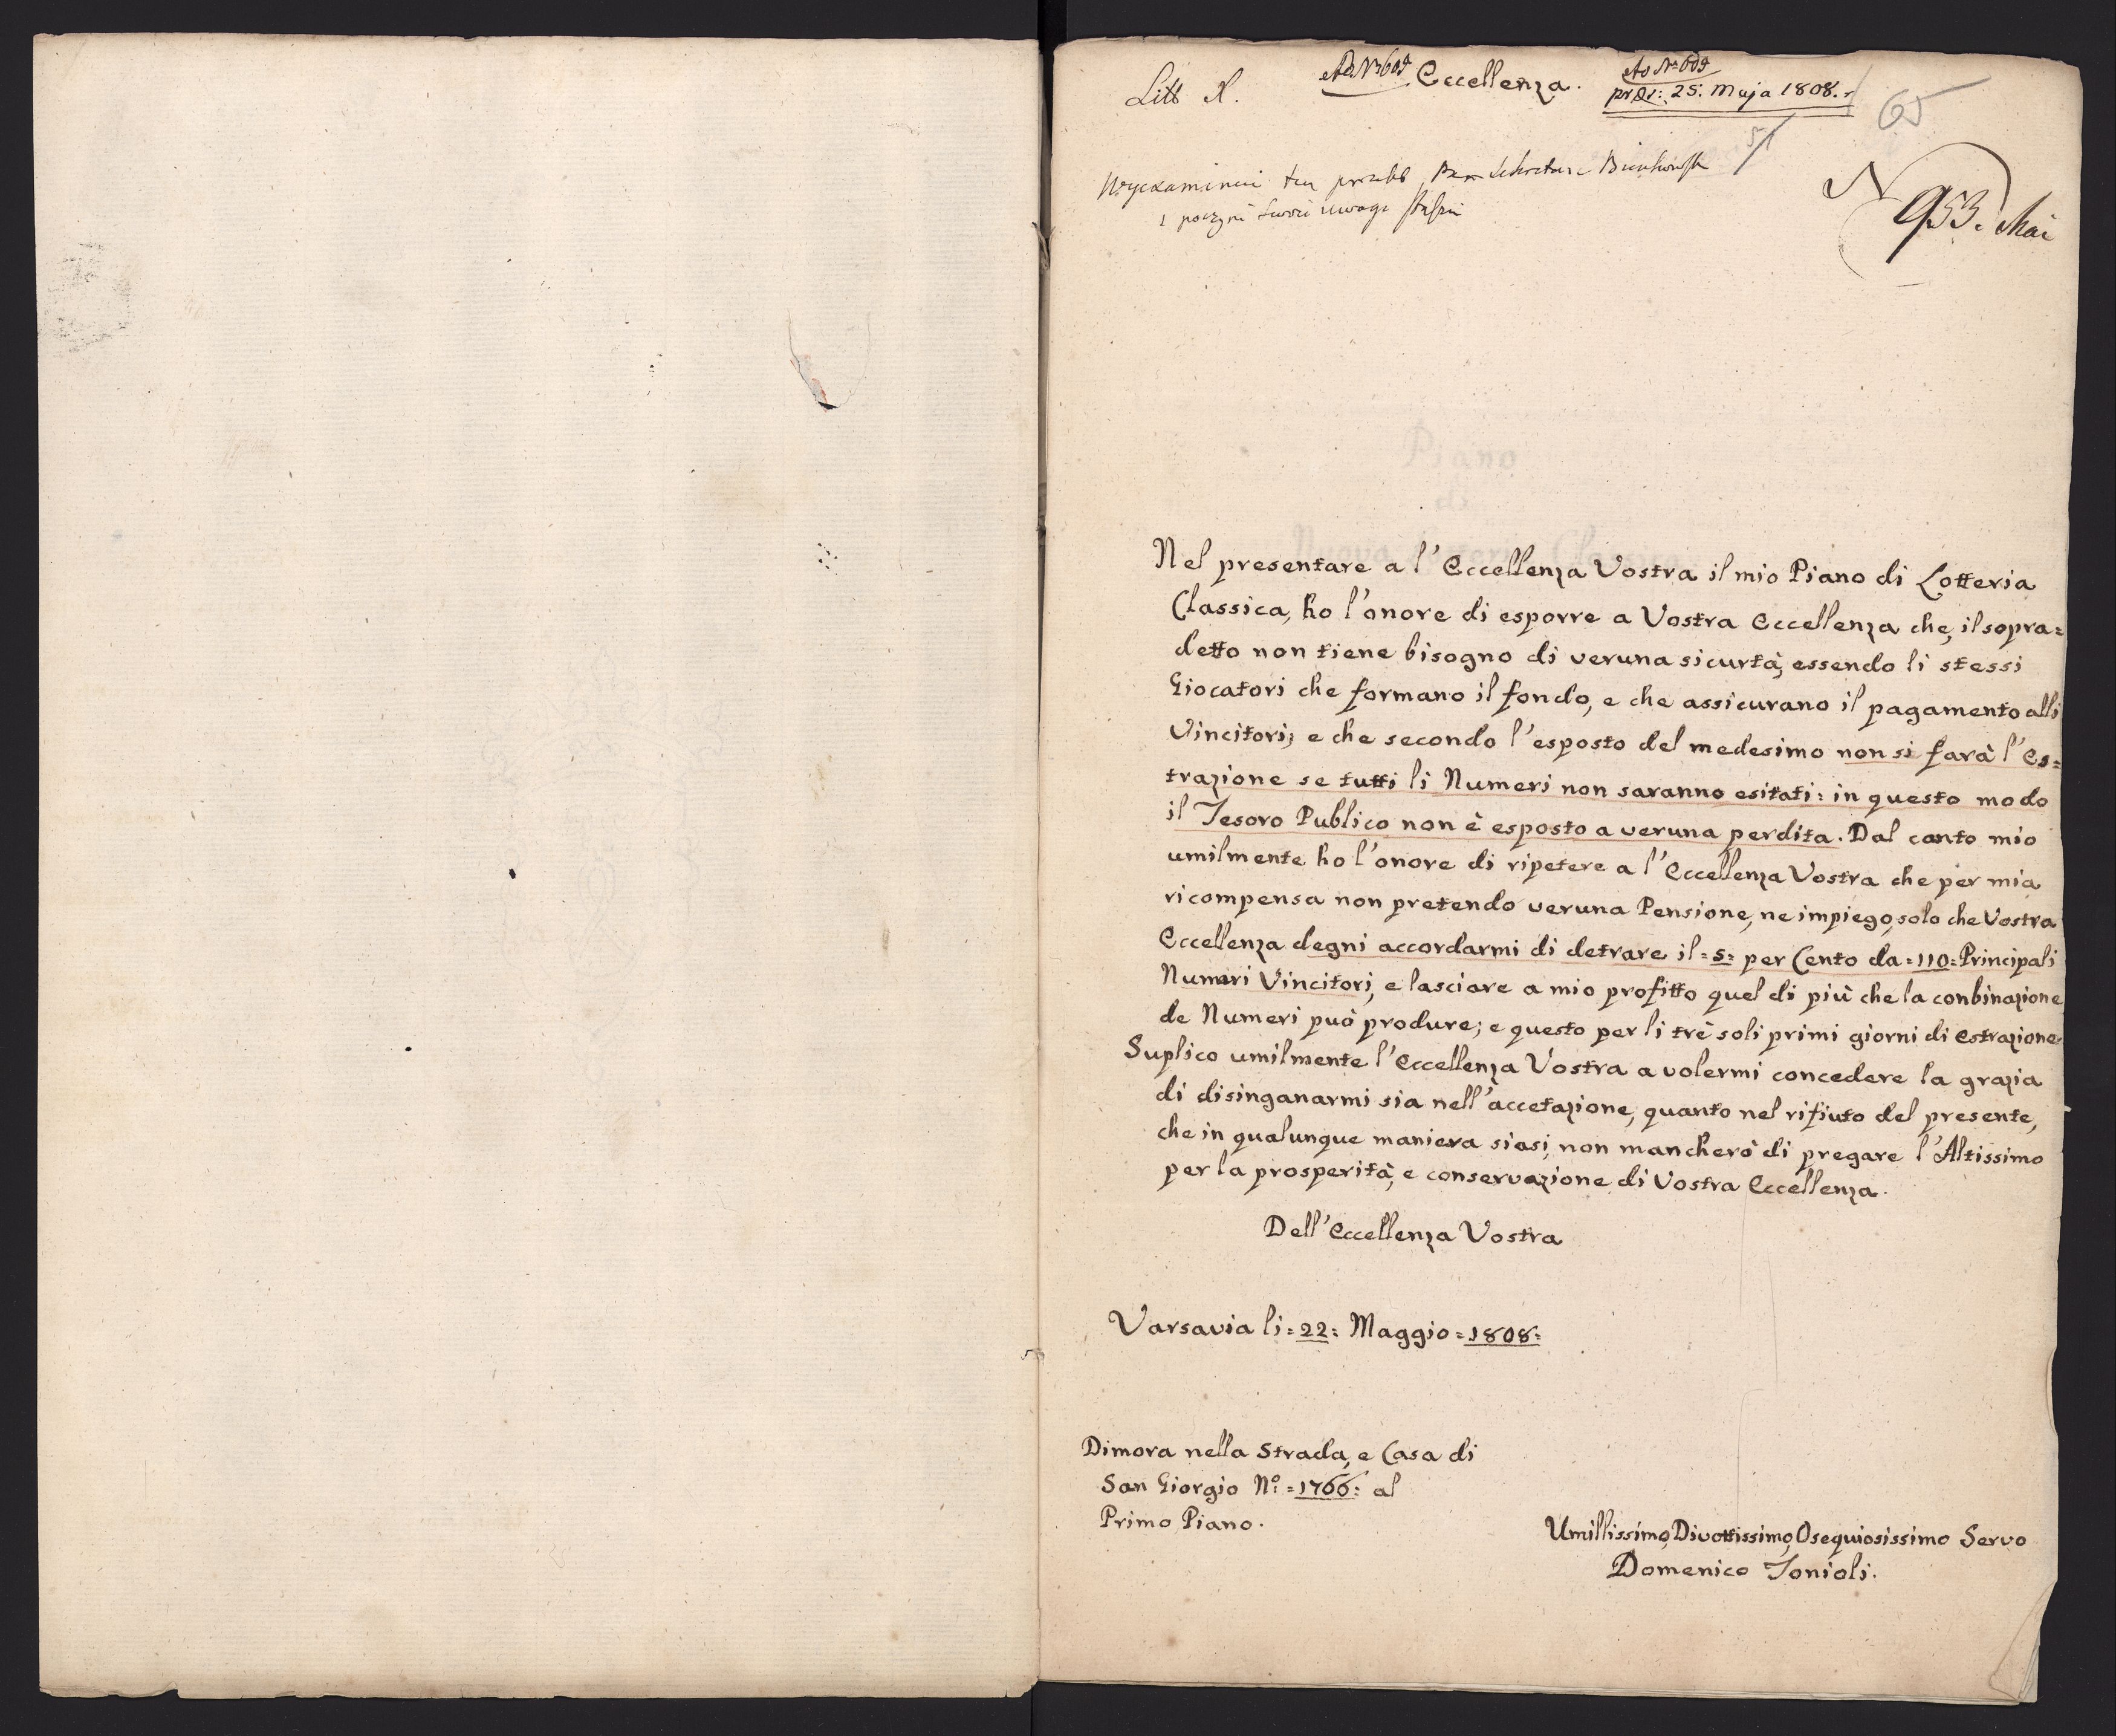 Litt N.
Ad Nr 609
Eccellenza.
Ad Nr 609
præs: 25. Maja 1808.
65
N 953. Mai
Wyexaminuie ten Sekretarz Bienkowski
i poczyni swoie uwagi
Piano
di
Nuova Lotteria Classica
Nel presentare a l'Eccellenza Vostra il mio Piano di Lotteria
Classica, ho l'onore di esporre a Vostra Eccellenza che, il sopra=
detto non tiene bisogno di veruna sicurtà, essendo li stessi
Giocatori che formano il fondo, e che assicurano il pagamento alli
Vincitori; e che secondo l'esposto del medesimo non si farà l'Es=
trazione se tutti li Numeri non saranno esitati: in questo modo
il Tesoro Publico non è esposto a veruna perdita. Dal canto mio
umilmente ho l'onore di ripetere a l'Eccellenza Vostra che per mia
ricompensa non pretendo veruna Pensione, ne impiego, solo che Vostra
Eccellenza degni accordarmi di detrare il =5= per Cento da =110= Principali
Numeri Vincitori, e lasciare a mio profitto quel di più che la conbinazione
de Numeri può produre; e questo per li trè soli primi giorni di Estrazione.
Suplico umilmente l'Eccellenza Vostra a volermi concedere la grazia
di disinganarmi sia nell'accetazione, quanto nel rifiuto del presente,
che in qualunque maniera siasi, non mancherò di pregare l'Altissimo
per la prosperità, e conservazione di Vostra Eccellenza.
Dell'Eccellenza Vostra
Varsavia li =22= Maggio =1808=
Dimora nella Strada, e Casa di
San Giorgio No: =1766= al
Primo Piano.
Umillissimo, Divottissimo, Osequiosissimo Servo
Domenico Tonioli.